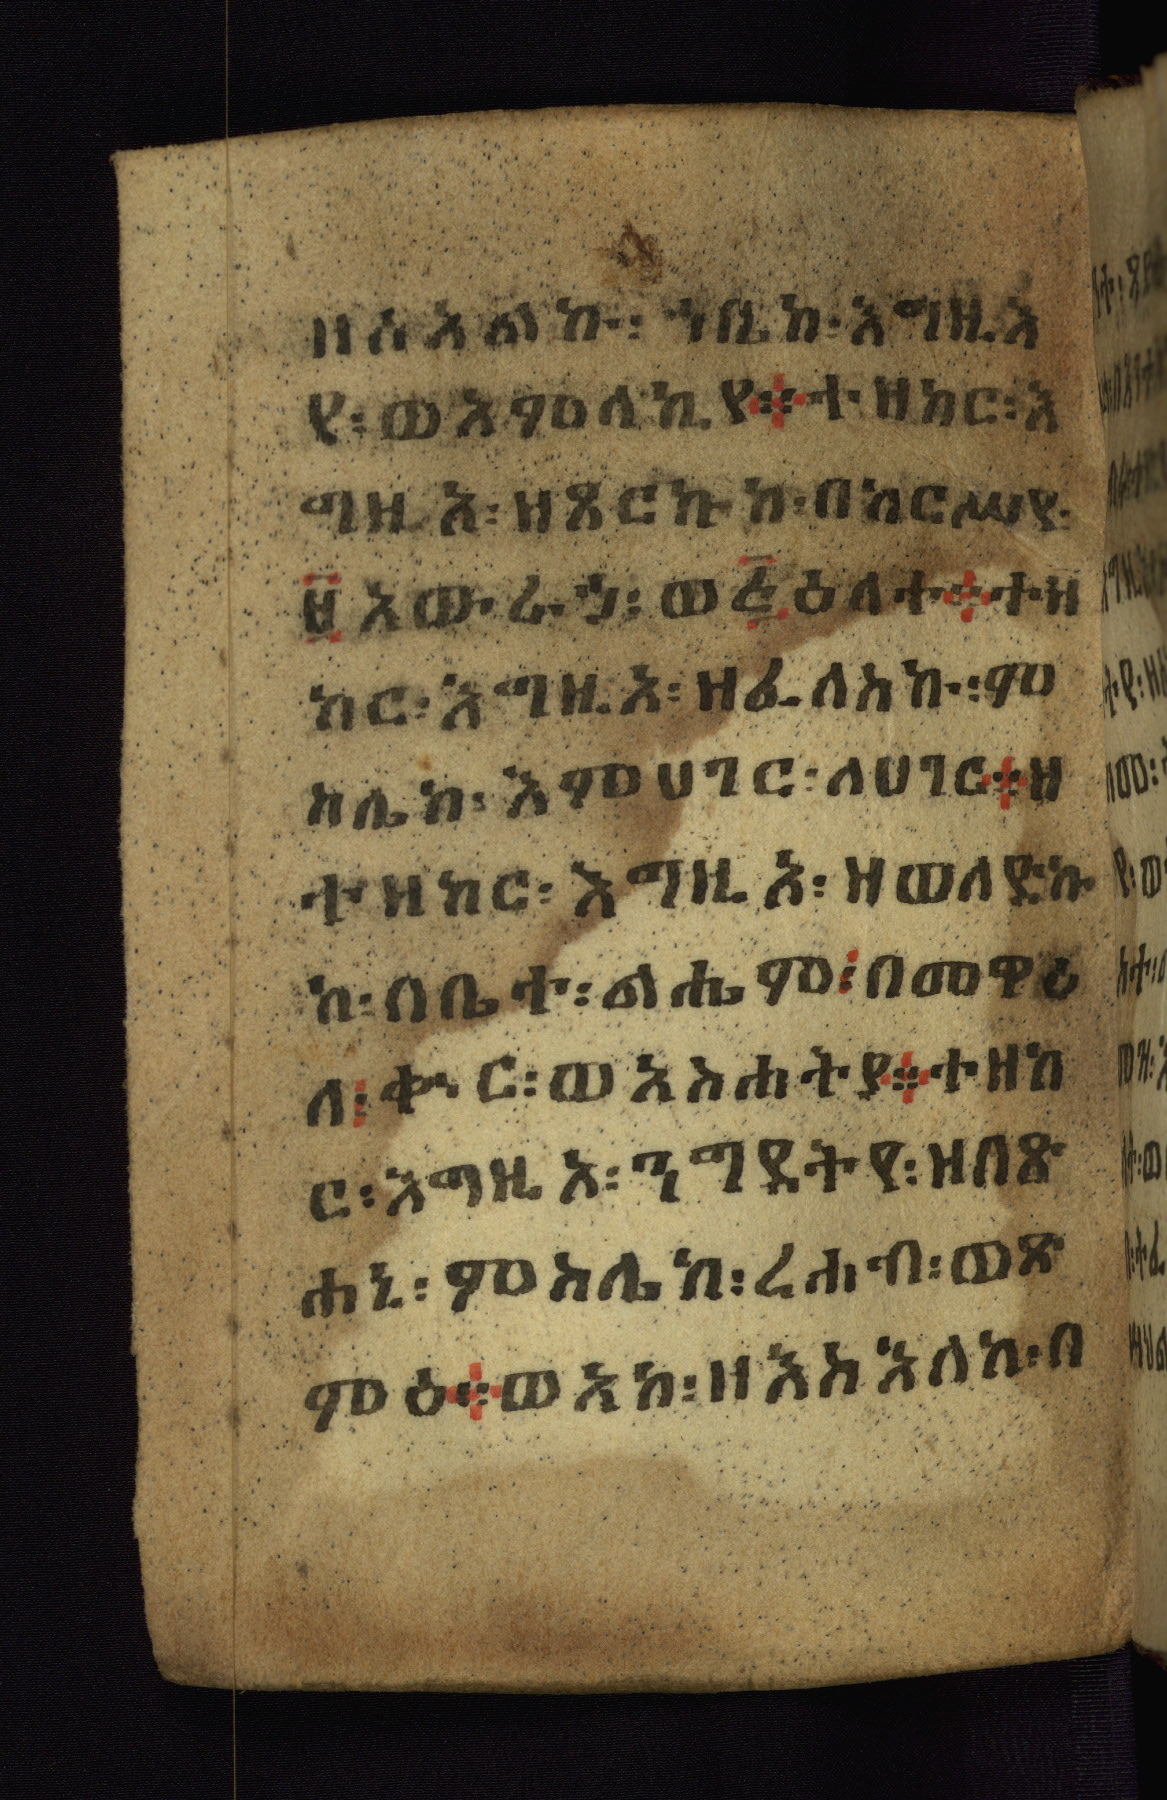 ዘሰአልኩ፡ ኀቤከ፡እግዚእ
የ፡ወአምላኪየ፨ተዘከር፡እ
ግዚእ፡ዘጾርኩከ፡በከርሥየ፡
፱አውራኃ፡ወ፭ዕለተ፨ተዘ
ከር፡እግዚእ፡ዘፈለስኩ፡ም
ስሌከ፡እምሀገር፡ለሀገር፨ዘ
ተዘከር፡እግዚእ፡ዘወለድኩ
ከ፡በቤተ፡ልሔም፡በመዋዕ
ለ፡ቍር፡ወአስሐትያ፨ተዘከ
ር፡እግዚእ፡ንግደትየ፡ዘበጽ
ሐኒ፡ምስሌከ፡ረሐብ፡ወጽ
ምዕ፨ወአከ፡ዘእስእለከ፡በ